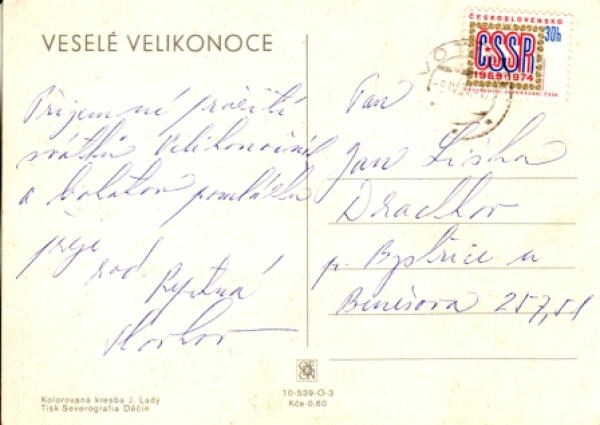 VESELÉ VELIKONOCE
Příjemné prožití
svátků Velikonočních
a bohatou pomlázku
přeje
rod.
ČESKOSLOVENSKO
30h
ČSSR
1969-1974
Pan
Jan Liška
Drachkov
p. Bystřice u
Benešova 257,51
10-539-O-3
Kčs 0,60
Kolorovaná kresba J. Lady
Tisk Severografia Děčín